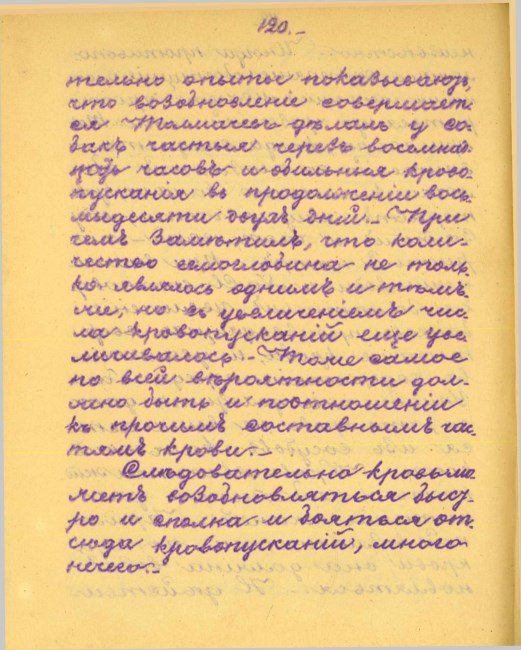 120.-
тельно опыты показываютъ,
что возобновленіе совершает-
ся Толмачевъ дѣлалъ у со-
бакъ частыя черезъ восемнад-
цать часовъ и обильныя крово-
пусканія въ продолженіи вось-
мидесяти двухъ дней - При-
чемъ Замѣтилъ, что коли-
чество гемоглобина не толь-
ко являлось однимъ и тѣмъ
же, но съ увеличеніемъ чис-
ла кровопусканій еще уве-
личивалось - Тоже самое
по всей вѣроятности дол-
жно быть и поотношеніи
къ прочимъ составнымъ час-
тямъ крови.-
Слѣдовательно кровь мо
жетъ возобновляться быст-
ро и сполна и бояться от-
сюда кровопусканій, много
нечего.-